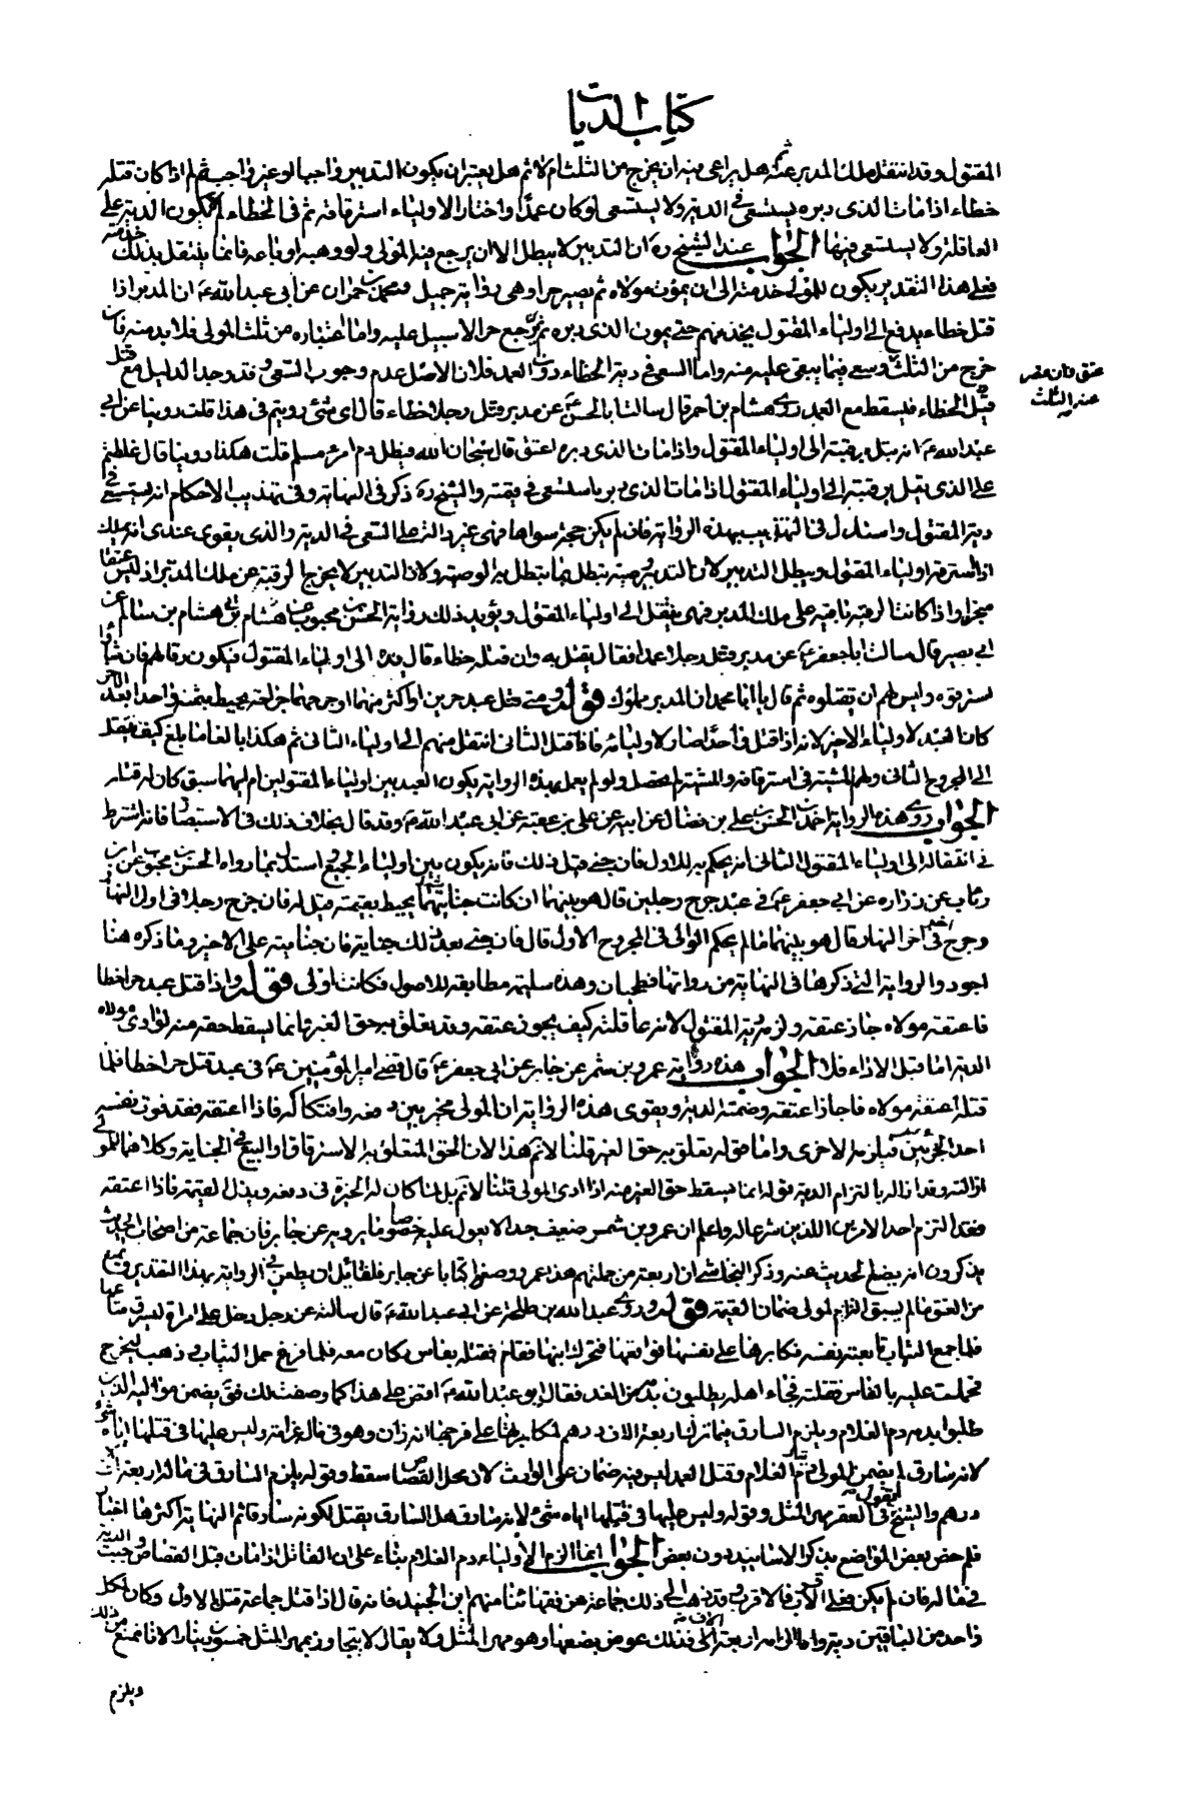 كتاب الديات
المقتول وقد انتقل ملك المدبر عنه ثم هل يراعى فيه ان يخرج من الثلث ام لا ثم هل يعتبر ان يكون التدبير واجبا او غير واجب ثم لم اذا كان قتله
خطاء اذا مات الذى دبره يستسعى فى الدية ولا يستسعى لو كان عمدا واختار الاولياء استرقاقه ثم فى الخطاء لم لا يكون الدية على
العاقلة ولا يستسعى فيها الجواب عند الشيخ ره ان التدبير لا يبطل الا ان يرجع فيه المولى ولو وهبه او باعه فانما ينتقل بذلك خدمته
فعلى هذا التقدير يكون للمولى خدمته الى ان يموت مولاه ثم يصير حرا وهى رواية جميل ومحمد بن حمران عن ابى عبد الله ع ان المدبر اذا
قتل خطاء يدفع الى اولياء المقتول يخدمهم حتى يموت الذى دبره ثم يرجع حرا لا سبيل عليه واما اعتباره من ثلث المولى فلا بد منه فان
خرج من الثلث وسعى فيما يبقى عليه منه واما السعى فى دية الخطاء دون العمد فلان الاصل عدم وجوب السعى وقد وجد الدليل مع قتل
عتق وان عصر
عنه الثلث
قتل الخطاء فيسقط مع العمد روى هشام بن احمر قال سالت ابا الحسن ع عن مدبر قتل رجلا خطاء قال اى شئ رويتم فى هذا قلت روينا عن ابى
عبد الله ع انه يتل برقبته الى اولياء المقتول واذا مات الذى دبره اعتق قال سبحان الله فيطل دم امرئ مسلم قلت هكذا روينا قال غلطتم
على الذى يتل برقبته الى اولياء المقتول اذا مات الذى دبر استسعى فى قيمته والشيخ ره ذكر فى النهاية وفى تهذيب الاحكام انه يستسعى فى
دية المقتول واستدل فى التهذيب بهذه الرواية فان لم يكن حجة سواها فهى غير دالة على السعى فى الدية والذى يقوى عندى انه يملك
اذا استرقه اولياء المقتول ويبطل التدبير لان التدبير وصية يبطل بما يبطل به الوصية ولان التدبير لا يخرج الرقبة عن ملك المدبر اذ ليس عتقا
منجزا واذا كانت الرقبة باقية على ملك المدبر فهى ينتقل الى اولياء المقتول ويؤيد ذلك رواية الحسن بن محبوب عن هشام بن سالم عن
ابى بصير قال سالت ابا جعفر ع عن مدبر قتل رجلا عمدا فقال يقتل به وان قتله خطاء قال يدفع الى اولياء المقتول فيكون رقا لهم فان شاؤا
استرقوه وليس لهم ان يقتلوه ثم قال يا ابا محمد ان المدبر مملوك قوله ومتى قتل عبد حرين او اكثر منهما او جرحهما جراحة يحيط بثمنه واحدا بعد الاخر
كان العبد لاولياء الاخير لانه اذا قتل واحدا فصار لاوليائه فاذا قتل الثانى انتقل منهم الى اولياء الثانى ثم هكذا بالغا ما بلغ كيف ينتقل
الجواب روى هذه الرواية احمد بن الحسن بن على بن فضال عن ابيه عن على بن عقبة عن ابى عبد الله ع وقد قال بخلاف ذلك فى الاستبصار فانه اشترط
فى انتقاله الى اولياء المقتول الثانى ان يحكم به للاول فان جنى قبل ذلك فانه يكون بين اولياء الجميع واستدل بما رواه الحسن بن محبوب عن ابن
رئاب عن زراره عن ابى جعفر ع فى عبد جرح رجلين قال هو بينهما ان كانت جنايتهما يحيط بقيمته قيل له فان جرح رجلا فى اول النهار
وجرح اخر فى اخر النهار قال هو بينهما ما لم يحكم الوالى فى المجروح الاول قال فان جنى بعد ذلك جناية فان جنايته على الاخير وما ذكره هنا
اجود والرواية التى ذكرها فى النهاية من رواتها فطحيان وهذه سليمة مطابقة للاصول فكانت اولى قوله واذا قتل عبد حرا خطا
فاعتقه مولاه جاز عتقه ولزمه دية المقتول لانه عاقلته كيف يجوز عتقه وقد تعلق به حق الغير وانما يسقط حقه منه لو ادى مولاه
الدية اما قبل الاداء فلا الجواب هذه رواية عمرو بن شمر عن جابر عن ابى جعفر ع قال قضى امير المؤمنين ع فى عبد قتل حرا خطا فلما
قتله اعتقه مولاه فاجاز عتقه وضمنه الدية ويقوى هذه الرواية ان المولى مخير بين دفعه وافتكاكه فاذا اعتقه فقد فوت بنفسه
فقد التزم احد الامرين اللذين شرعا له واعلم ان عمرو بن شمس ضعيف جدا لا يعول عليه خصوصا ما يرويه عن جابر فان جماعة من اصحاب الحديث
يذكرون انه يضع الحديث عنه وذكر النجاشى ان اربعة من جملتهم هذا عمرو وضعوا كتابا عن جابر فلقائل ان يطعن فى الرواية بهذا التقدير فيمنع
من العتق ما لم يسبق التزام المولى ضمان القيمة قوله وروى عبد الله بن طلحة عن ابى عبد الله ع قال سالته عن رجل دخل على امراة ليسرق متاعها
فلما جمع الثياب تابعته نفسه فكابرها على نفسها فواقعها فتحرك ابنها فقام فقتله بفاس كان معه فلما فرغ حمل الثياب وذهب ليخرج
فحملت عليه بالفاس فقتلته فجاء اهله يطلبون بدمه من الغد فقال ابو عبد الله ع اقض على هذا كما وصفت لك فق يضمن مواليه الذين
طلبوا بدمه دم الغلام ويلزم السارق فيما ترك اربعة الاف درهم لمكابرتها على فرجها انه زان وهو فى ماله غرامة وليس عليها فى قتلها اياه شئ
لانه سارق لم يضمن المولى دية الغلام وقتل العمد ليس فيه ضمان على الوارث لان محل القصاص سقط وقوله يلزم السارق فى ماله اربعة الاف
درهم والشيخ يقول فى العقر مهر المثل وقوله وليس عليها فى قتلها اياه شئ لانه سارق هل السارق يقتل لكونه سارقا ثم النهاية اكثرها اخبار
فلم خص بعض المواضع بذكر الاسانيد دون بعض الجواب انما الزم الاولياء دم الغلام بناء على ان القاتل اذا مات قبل القصاص وجبت الدية
فى ماله فان لم يكن فعلى الاقرب فالاقرب وقد ذهب الى ذلك جماعة من فقهائنا منهم ابن الجنيد فانه قال اذا قتل جماعة قتل بالاول وكان لكل
واحد من الباقين دية واما الزامه اربعة الاف فذلك عوض بضعها وهو مهر المثل ولا يقال لا يتجاوز بمهر المثل خمسون دينارا لانا نمنع من ذلك
ويلزم